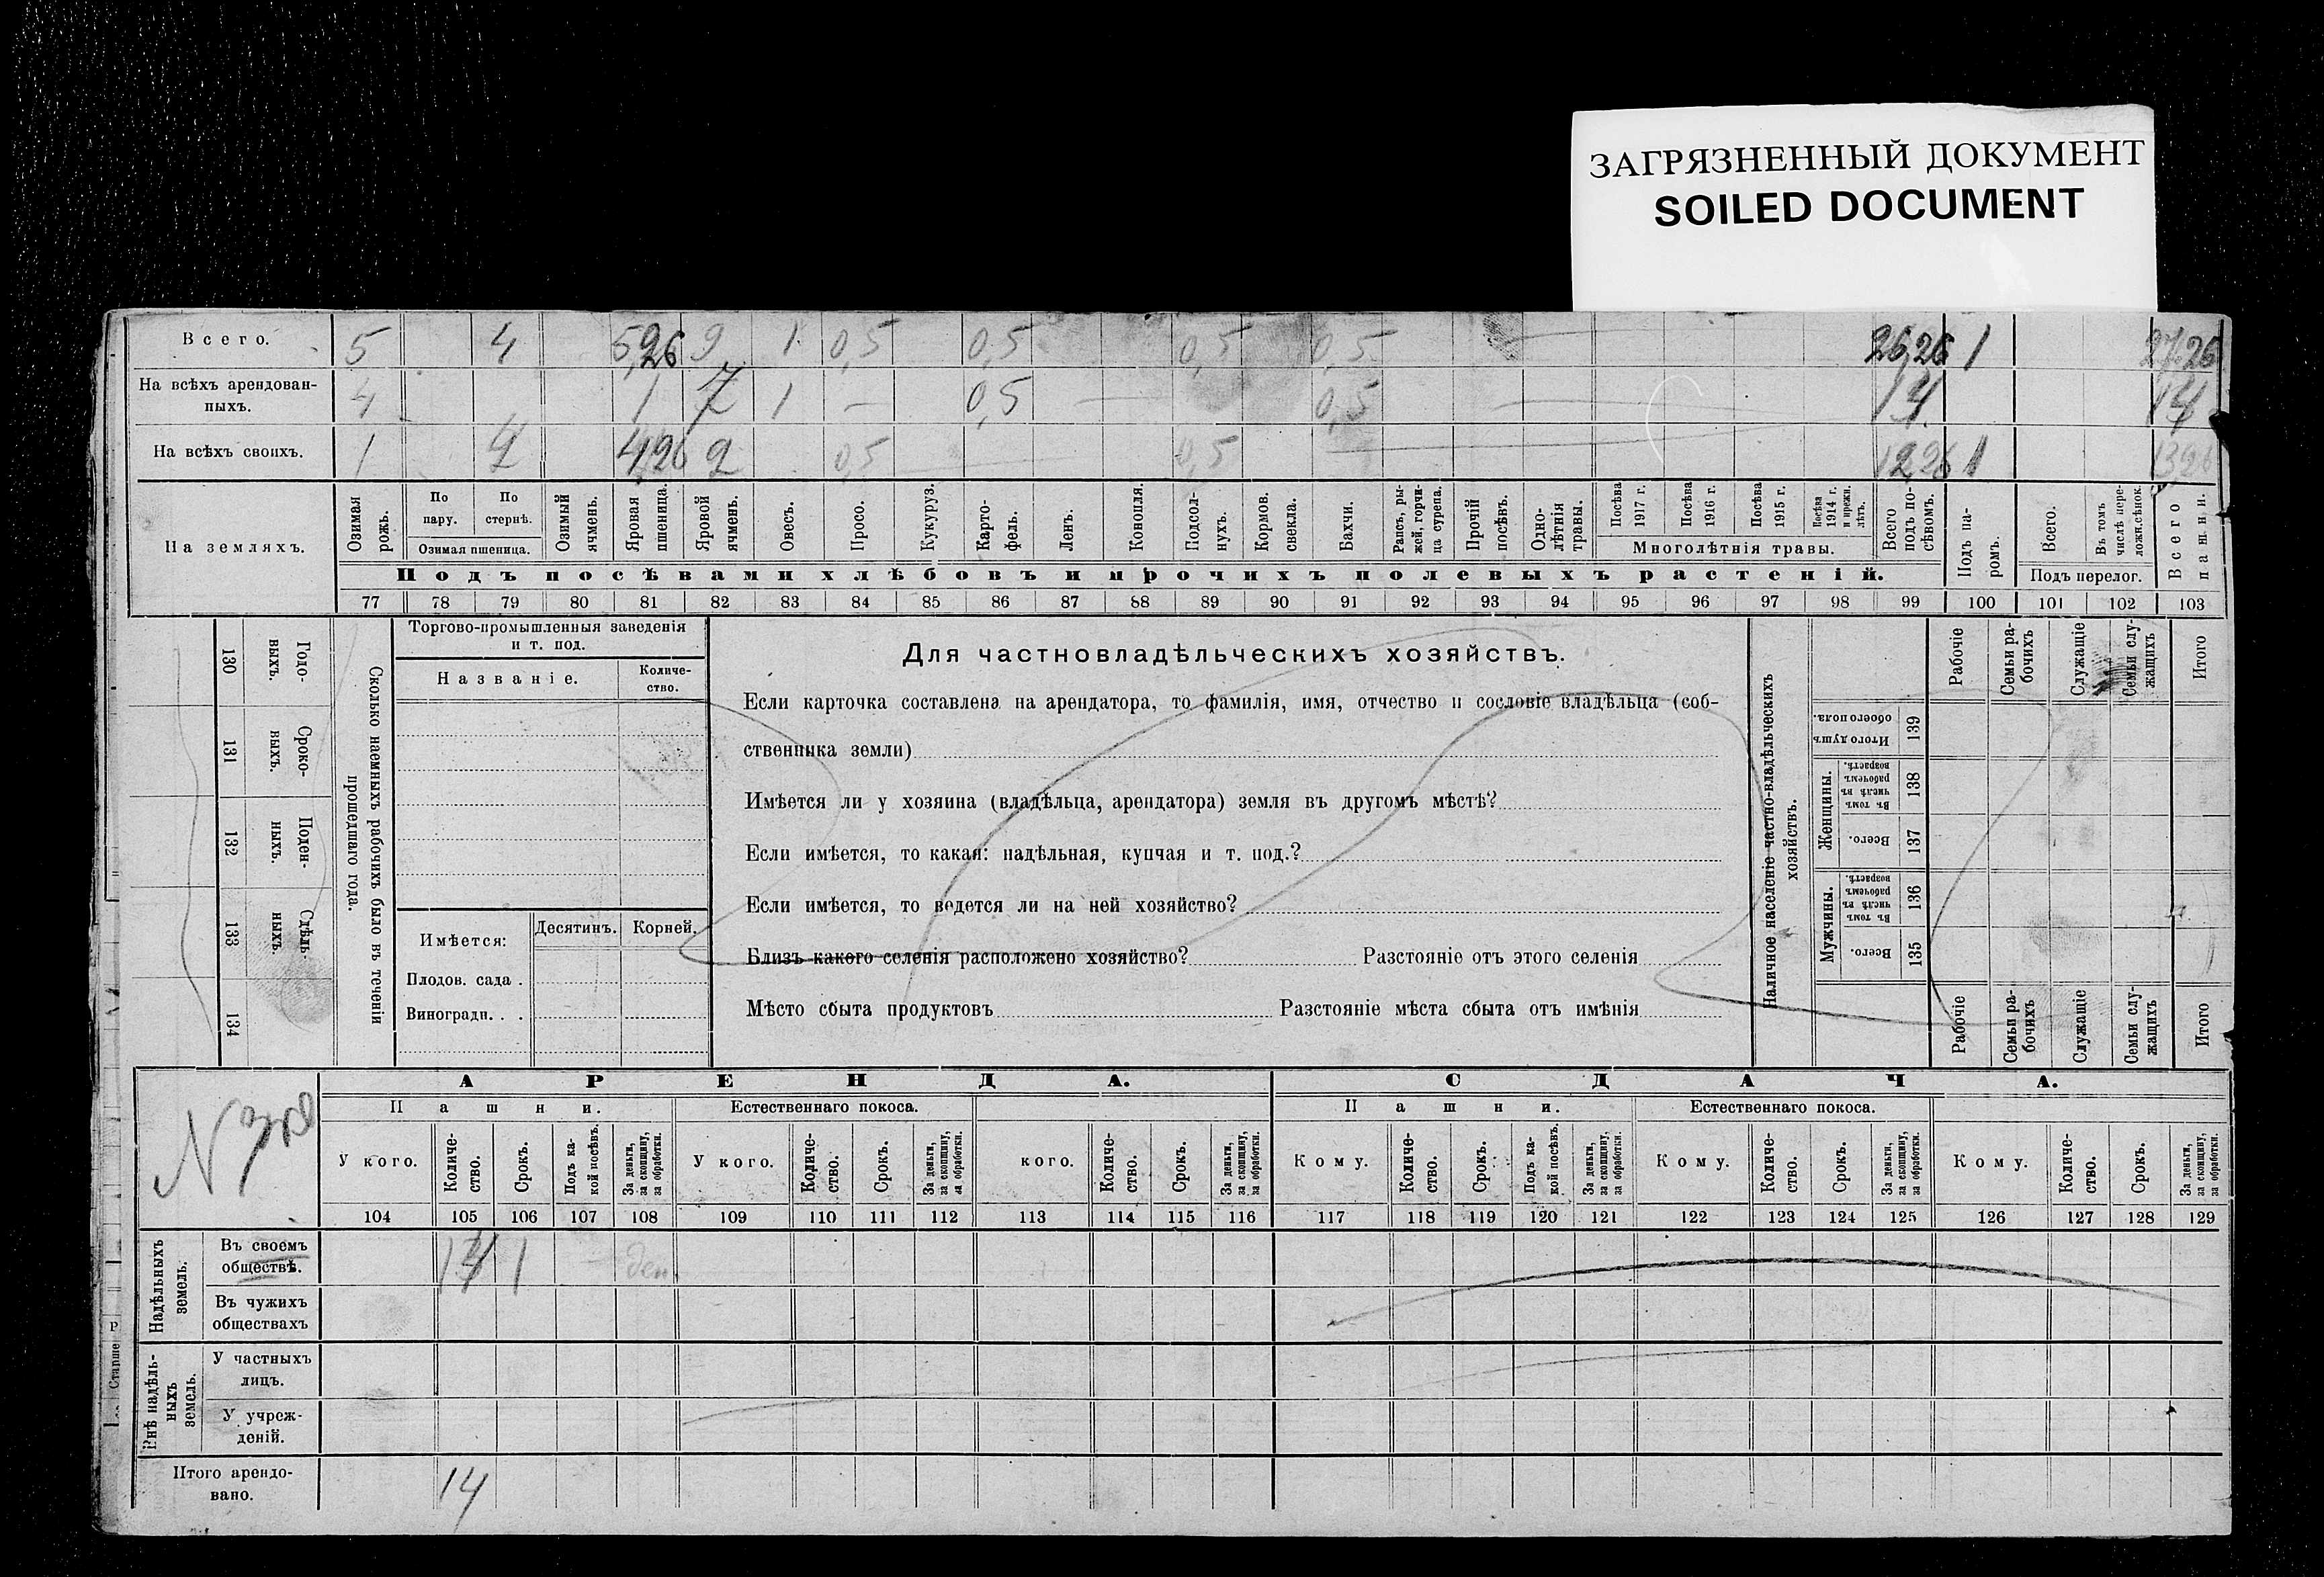 ЗАГРЯЗНЕННЫЙ ДОКУМЕНТ
SOILED DOCUMENT
Всего. 5 4 5,26 9 1 0,5 0,5 0,5 0,5 26,26 1 27.26
На всѣхъ арендован-
ныхъ. 4 1 7 1 — 0,5 0,5 14 14
На всѣхъ своихъ. 1 4 4,26 2 0,5 0,5 12,26 1 13,26
На земляхъ.
Озимая рожь.
По пару.
По стернѣ.
Озимая пшеница.
Озимый ячмень.
Яровая пшеница.
Яровой ячмень.
Овесъ.
Просо.
Кукуруз.
Карто-
фель.
Ленъ.
Конопля.
Подсол-
нухъ.
Кормов. свекла.
Бахчи.
Рапсъ, ры-
жей, горчи-
ца сурепа.
Прочій посѣвъ.
Одно-
лѣтнія травы.
Посѣва 1917 г.
Посѣва 1916 г.
Посѣва 1915 г.
Посѣва 1914 г. и прежн. лѣтъ.
Многолѣтнія травы.
Всего подъ по-
сѣвомъ.
Подъ па-
ромъ.
Всего.
Въ томъ числѣ пере-
ложн. сѣнок.
Подъ перелог.
Всего пашни.
Подъ посѣвами хлѣбовъ и прочихъ полевыхъ растеній.
77 78 79 80 81 82 83 84 85 86 87 88 89 90 91 92 93 94 95 96 97 98 99 100 101 102 103
130 Годо-
выхъ.
131 Сроко-
выхъ.
132 Поден-
ныхъ.
133 Сдѣль-
ныхъ.
134
Сколько наемныхъ рабочихъ было въ теченіи
прошедшаго года.
Торгово-промышленныя заведенія
и т. под.
Названіе.
Количе-
ство.
Имѣется:
Десятинъ. Корней.
Плодов. сада .
Виноградн. . .
Для частновладѣльческихъ хозяйствъ.
Если карточка составлена на арендатора, то фамилія, имя, отчество и сословіе владѣльца (соб-
ственника земли)
Имѣется ли у хозяина (владѣльца, арендатора) земля въ другомъ мѣстѣ?
Если имѣется, то какая: надѣльная, купчая и т. под.?
Если имѣется, то ведется ли на ней хозяйство?
Близъ какого селенія расположено хозяйство? Разстояніе отъ этого селенія
Мѣсто сбыта продуктовъ Разстояніе мѣста сбыта отъ имѣнія
Наличное населеніе частно-владѣльческихъ
хозяйствъ.
Рабочіе
Семьи ра-
бочихъ
Служащіе
Семьи слу-
жащихъ
Итого
Итого душъ обоего пола. 139
Женщины.
Въ томъ числѣ въ рабочемъ возрастѣ. 138
Всего. 137
Мужчины.
Въ томъ числѣ въ рабочемъ возрастѣ. 136
Всего. 135
Рабочіе
Семьи ра-
бочихъ
Служащіе
Семьи слу-
жащихъ
Итого
АРЕНДА. СДАЧА.
Пашни. Естественнаго покоса. Пашни. Естественнаго покоса.
У кого.
Количе-
ство.
Срокъ.
Подъ ка-
кой посѣвъ.
За деньги, за скопщину, за обработки.
У кого.
Количе-
ство.
Срокъ.
За деньги, за скопщину, за обработки.
кого.
Количе-
ство.
Срокъ.
За деньги, за скопщину, за обработки.
Кому.
Количе-
ство.
Срокъ.
Подъ ка-
кой посѣвъ.
За деньги, за скопщину, за обработки.
Кому.
Количе-
ство.
Срокъ.
За деньги, за скопщину, за обработки.
Кому.
Количе-
ство.
Срокъ.
За деньги, за скопщину, за обработки.
104 105 106 107 108 109 110 111 112 113 114 115 116 117 118 119 120 121 122 123 124 125 126 127 128 129
Надѣльныхъ
земель.
Въ своемъ
обществѣ. 14 1 ден.
Въ чужихъ
обществахъ
Внѣ надѣль-
ныхъ
земель.
У частныхъ
лицъ.
У учреж-
деній.
Итого арендо-
вано. 14